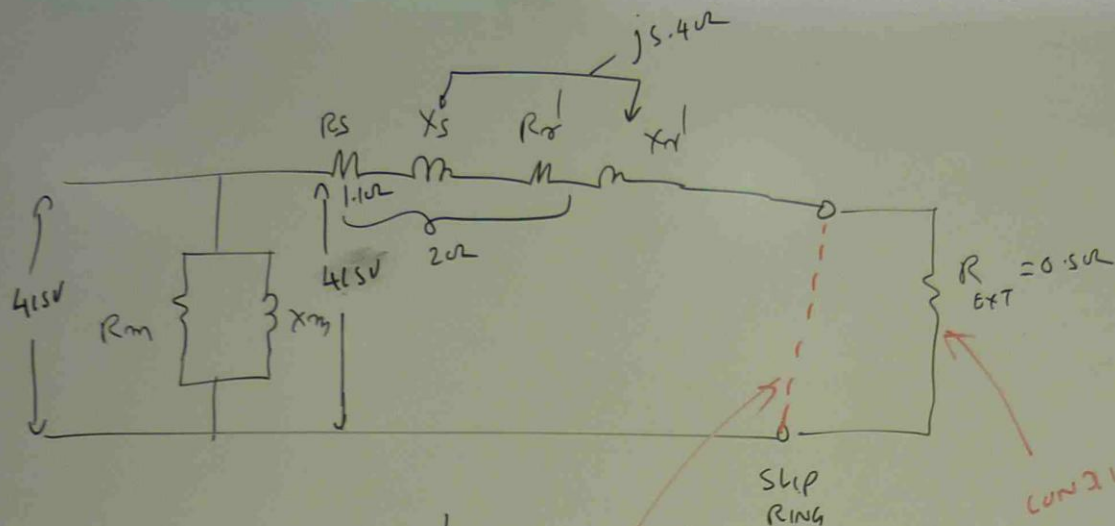 j5.4Ω
Rs Xs Rr' Xr'
1.1Ω
2Ω
415V
Rm Xm
415V
R EXT = 0.5Ω
SLIP
RING